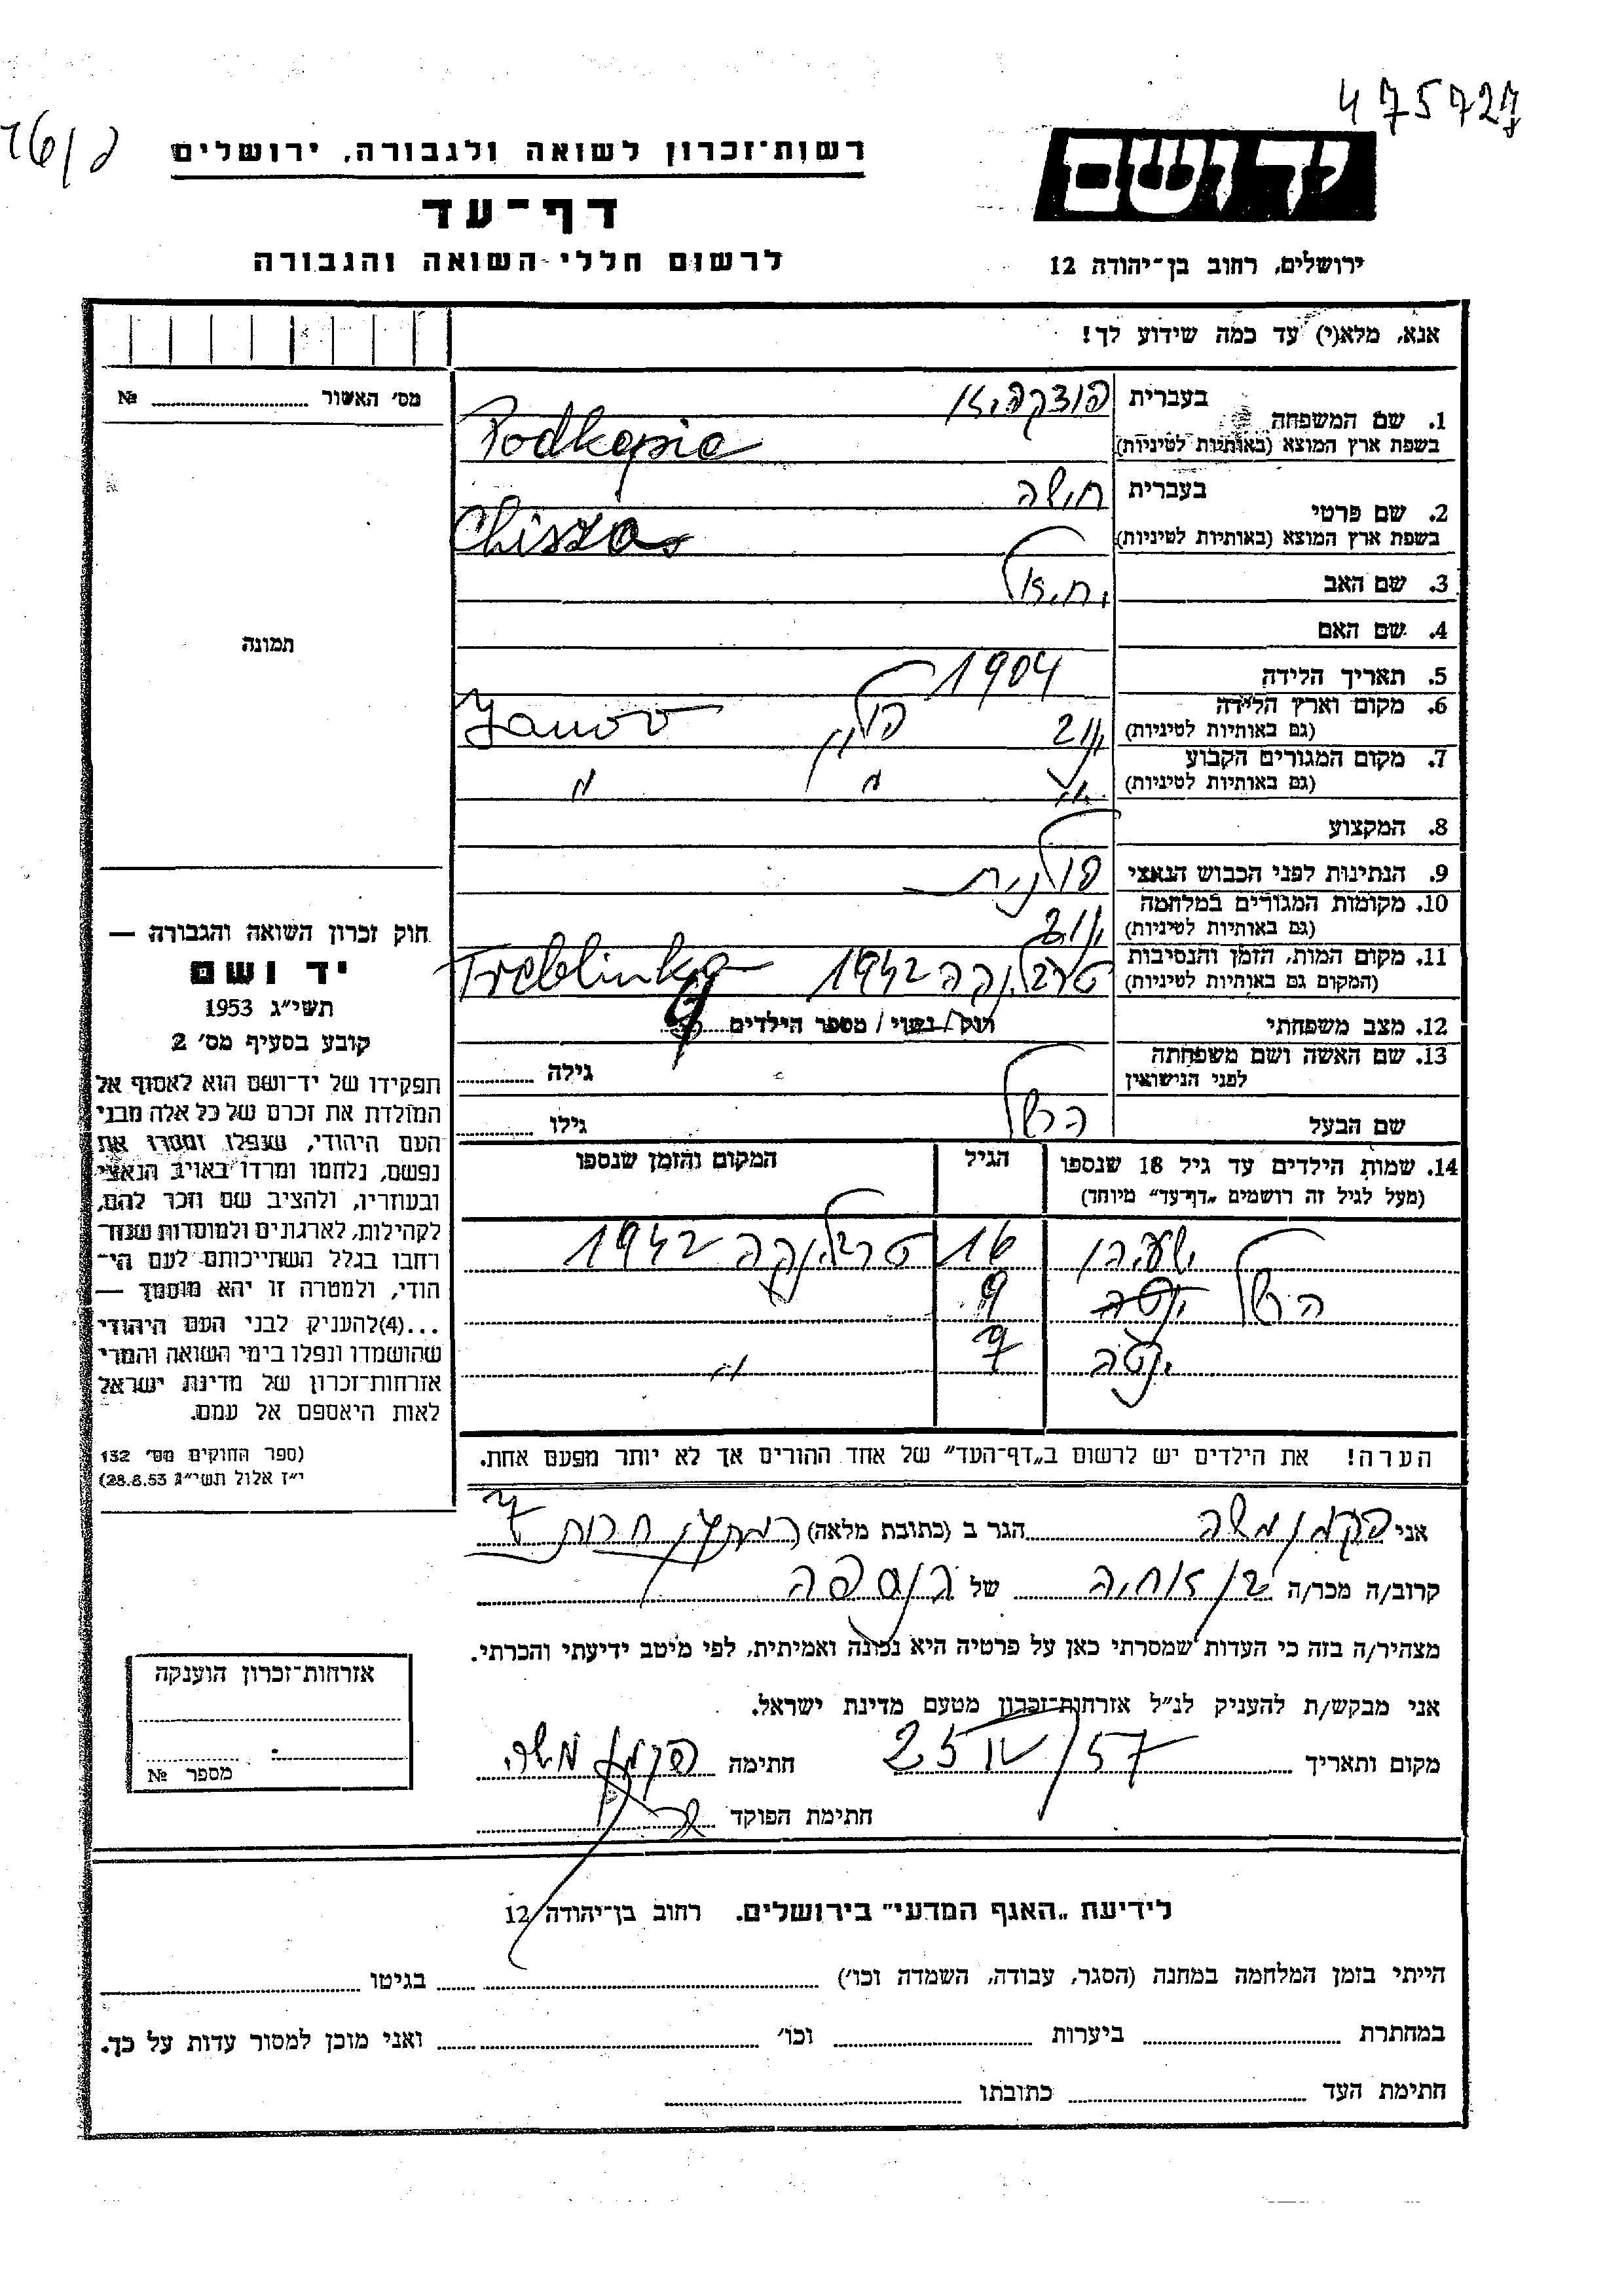 475727
16/פ
רשות־זכרון לשואה ולגבורה, ירושלים
יד ושם
דף־עד
לרשום חללי השואה והגבורה
ירושלים, רחוב בן־יהודה 12
אנא, מלא(י) עד כמה שידוע לך!
מס׳ האשור № ....................
1. שם המשפחה
בעברית
בשפת ארץ המוצא (באותיות לטיניות) Podkopie
2. שם פרטי
בעברית חישה
בשפת ארץ המוצא (באותיות לטיניות) Chisza
3. שם האב יחיאל
4. שם האם
תמונה
5. תאריך הלידה 1904
6. מקום וארץ הלידה
(גם באותיות לטיניות) ינוב פולין Janov
7. מקום המגורים הקבוע
(גם באותיות לטיניות) " " "
8. המקצוע
9. הנתינות לפני הכבוש הנאצי פולנית
10. מקומות המגורים במלחמה
(גם באותיות לטיניות) ינוב
11. מקום המות, הזמן והנסיבות
(המקום גם באותיות לטיניות) טרבלינקה 1942 Treblinka
12. מצב משפחתי רווק / נשוי / מספר הילדים
13. שם האשה ושם משפחתה
לפני הנישואין
גילה ..........
שם הבעל הרשל גילו ..........
14. שמות הילדים עד גיל 18 שנספו
(מעל לגיל זה רושמים „דף־עד” מיוחד)
הגיל
המקום והזמן שנספו
16 טרבלינקה 1942
הרשל 9
יטה 7 "
הערה! את הילדים יש לרשום ב„דף־העד” של אחד ההורים אך לא יותר מפעם אחת.
חוק זכרון השואה והגבורה —
יד ושם
תשי״ג 1953
קובע בסעיף מס׳ 2
תפקידו של יד־ושם הוא לאסוף אל
המולדת את זכרם של כל אלה מבני
העם היהודי, שנפלו ומסרו את
נפשם, נלחמו ומרדו באויב הנאצי
ובעוזריו, ולהציב שם וזכר להם,
לקהילות, לארגונים ולמוסדות שנח־
רחבו בגלל השתייכותם לעם הי־
הודי, ולמטרה זו יהא מוסמך —
...(4)להעניק לבני העם היהודי
שהושמדו ונפלו בימי השואה והמרי
אזרחות־זכרון של מדינת ישראל
לאות היאספם אל עמם.
(ספר החוקים מס׳ 132
י״ז אלול תשי״ג 28.8.53)
אני פקמן משה הגר ב (כתובת מלאה) חרות 7
קרוב/ה מכר/ה בן אחיה של הנספה
מצהיר/ה בזה כי העדות שמסרתי כאן על פרטיה היא נכונה ואמיתית, לפי מיטב ידיעתי והכרתי.
אני מבקש/ת להעניק לנ״ל אזרחות־זכרון מטעם מדינת ישראל.
מקום ותאריך 25 IV/57 חתימה פקמן משה
חתימת הפוקד
אזרחות־זכרון הוענקה
מספר №
לידיעת „האגף המדעי” בירושלים. רחוב בן־יהודה 12
הייתי בזמן המלחמה במחנה (הסגר, עבודה, השמדה וכו׳) .......... בגיטו ..........
במחתרת .......... ביערות .......... וכו׳ .......... ואני מוכן למסור עדות על כך.
חתימת העד .......... כתובתו ..........